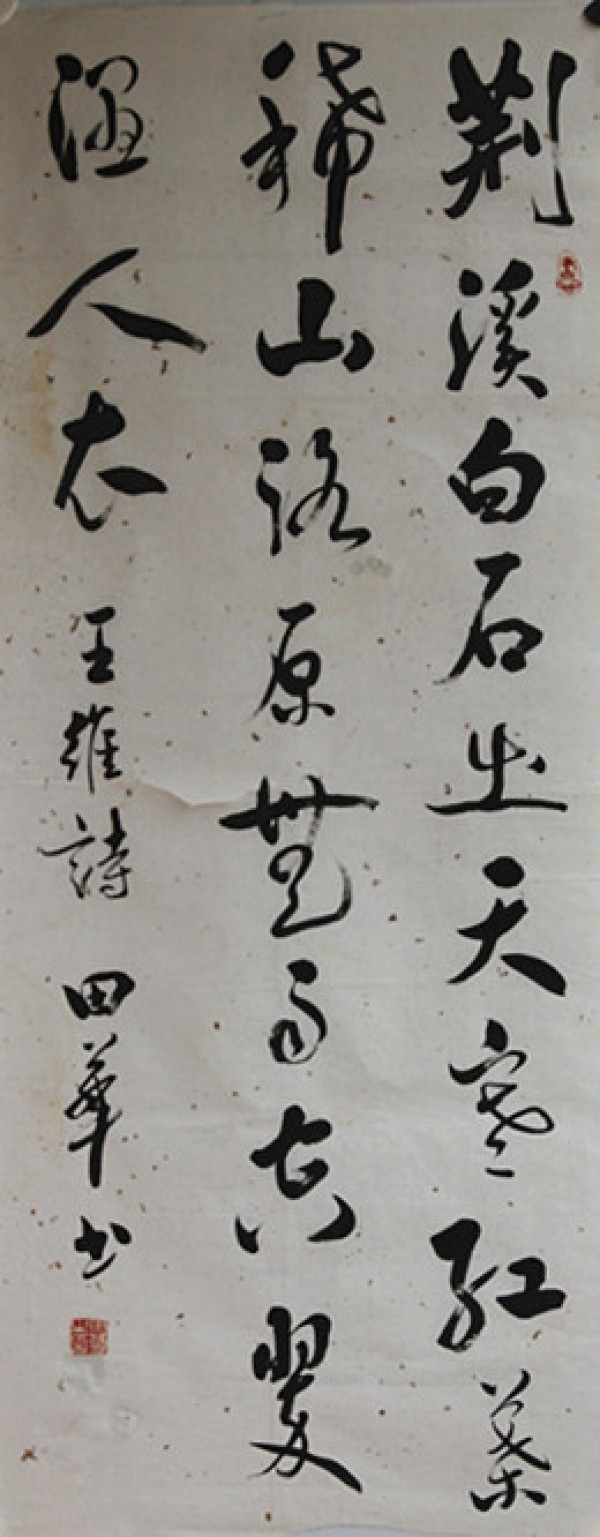 荆溪白石出天寒红葉
稀山路原無雨空翠
濕人衣 王維詩 田華书